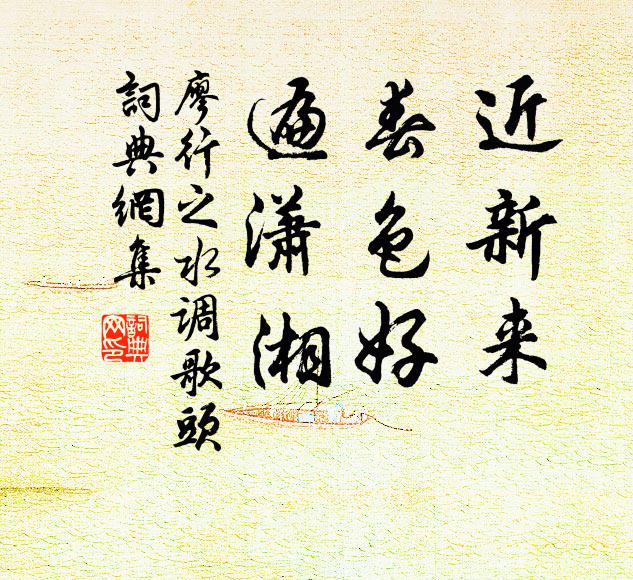 近新来
春色好
遍潇湘
廖行之水调歌頭
詞典網集
詞典網印